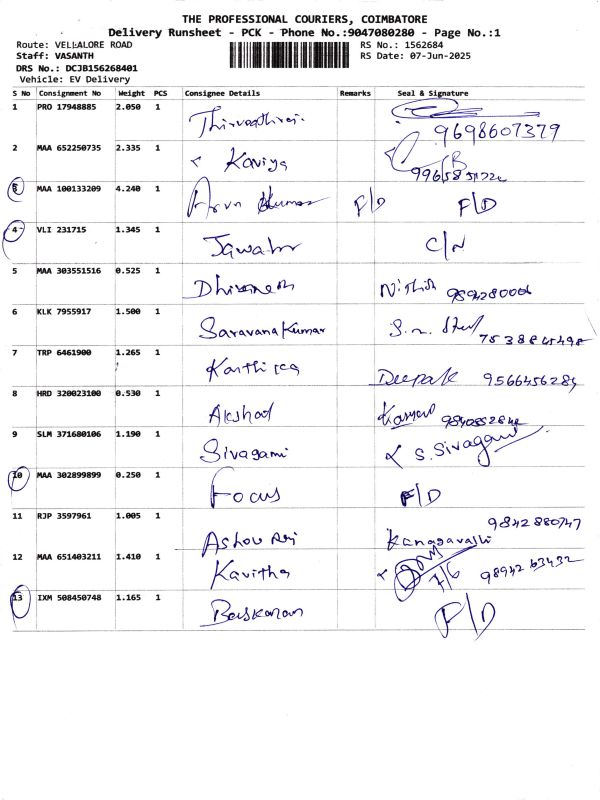 THE PROFESSIONAL COURIERS, COIMBATORE
Delivery Runsheet - PCK - Phone No.:9047080280 - Page No.:1
Route: VELLALORE ROAD RS No.: 1562684
Staff: VASANTH RS Date: 07-Jun-2025
DRS No.: DCJB156268401
Vehicle: EV Delivery
S No Consignment No Weight PCS Consignee Details Remarks Seal & Signature
1 PRO 17948885 2.050 1 9698607379
2 MAA 652250735 2.335 1 Kaviya
3 MAA 100133209 4.240 1 Arun Kumar F/D F/D
4 VLI 231715 1.345 1 Jawahr C/N
5 MAA 303551516 0.525 1 Nithish 9894280006
6 KLK 7955917 1.500 1 Saravana Kumar
7 TRP 6461900 1.265 1 Karthicca Deepak 9566456284
8 HRD 320023100 0.530 1 Akshad
9 SLM 371680106 1.190 1 Sivagami S. Sivagami
10 MAA 302899899 0.250 1 Focus F/D
11 RJP 3597961 1.005 1 9842880747
12 MAA 651403211 1.410 1 Kavitha 9894263432
13 IXM 508450748 1.165 1 Baskaran F/D